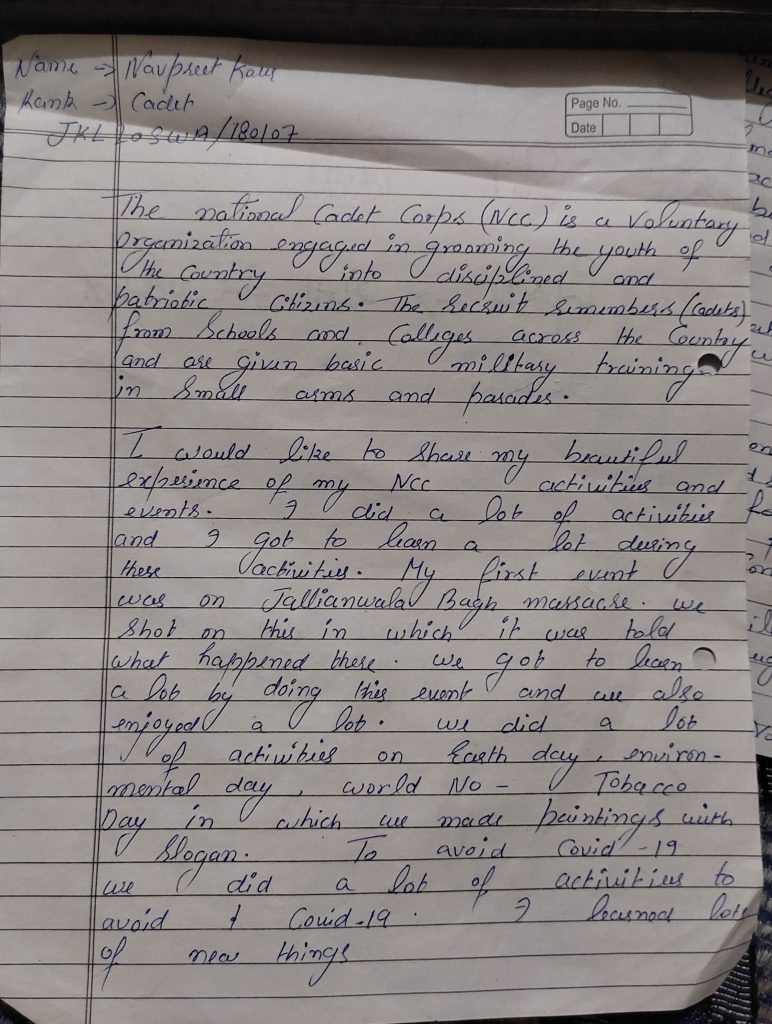 Name → Navpreet Kaur
Rank → Cadet
JKL20SWA/180107
Page No.
Date
The national Cadet Corps (NCC) is a voluntary
Organization engaged in grooming the youth of
the Country into disciplined and
patriotic Citizens. The recruit remembers (Cadets)
from Schools and Colleges across the Country
and are given basic military training
in Small arms and parades.
I would like to Share my beautiful
experience of my NCC activities and
events. I did a lot of activities
and I got to learn a lot during
these activities. My first event
was on Jallianwala Bagh massacre. we
Shot on this in which it was told
what happened there. we got to learn
a lot by doing this event and we also
enjoyed a lot. we did a lot
of activities on Earth day, environ-
mental day, world No - Tobacco
Day in which we made paintings with
Slogan. To avoid Covid-19
we did a lot of activities to
avoid Covid-19. I learned lots
of new things